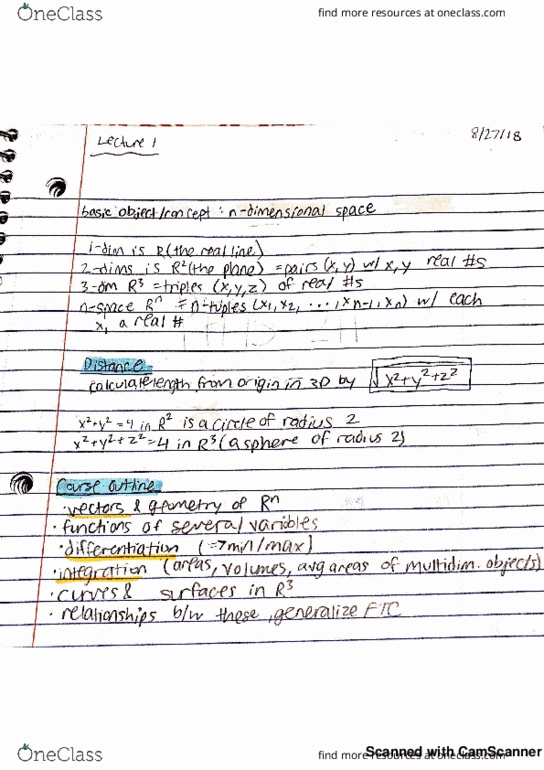 OneClass
find more resources at oneclass.com
Lecture 1
8/27/18
basic object/concept : n-dimensional space
1-dim is R (the real line)
2-dims is R² (the plane) = pairs (x, y) w/ x,y real #s
3-dim R³ = triples (x,y,z) of real #s
n-space Rⁿ = n-tuples (x₁, x₂, ..., xₙ₋₁, xₙ) w/ each
a real #
Distance
calculate length from origin in 3D by √x²+y²+z²
x²+y² = 4 in R² is a circle of radius 2
x²+y²+z²=4 in R³ (a sphere of radius 2)
Course Outline
· vectors & geometry of Rⁿ
· functions of several variables
· differentiation (=> min/max)
· integration (areas, volumes, avg areas of multidim. objects)
· curves & surfaces in R³
· relationships b/w these, generalize FTC
Scanned with CamScanner
OneClass
find more resources at oneclass.com